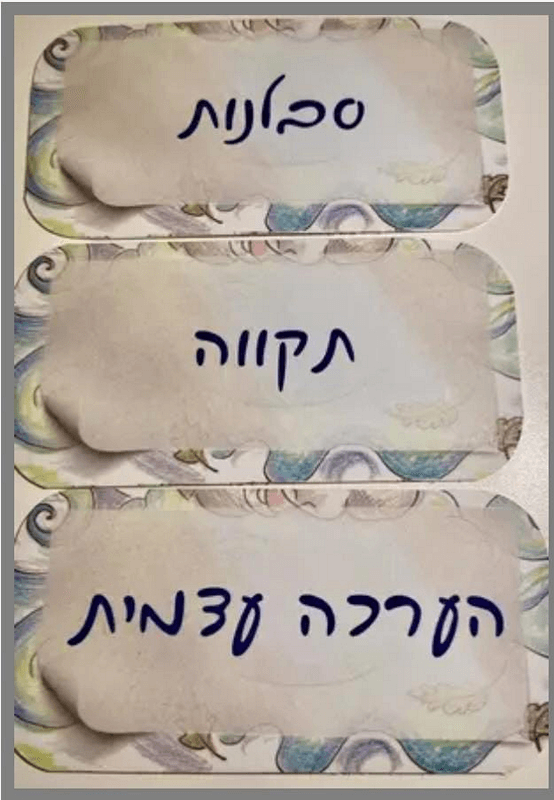 סבלנות
תקווה
הערכה עצמית